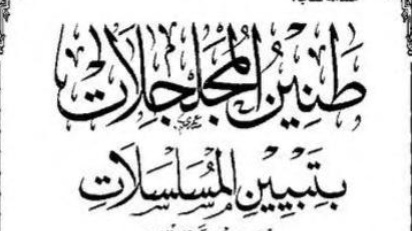 طَنِينُ المُجَلْجِلَاتِ
بِتَبْيِينِ المُسَلْسَلَاتِ